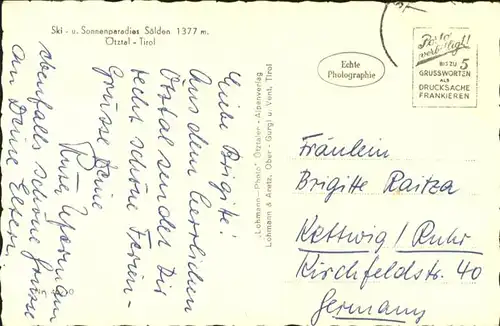 Ski - u. Sonnenparadies Sölden 1377 m.
Ötztal - Tirol
Liebe Brigitte!
Aus dem herrlichen
Ötztal sendet Dir
recht schöne Ferien-
Grüsse Deine
ebenfalls schöne Grüsse
an Deine Eltern
"Lohmann-Photo" Ötztaler-Alpenverlag
Lohmann & Aretz, Ober-Gurgl u. Vent, Tirol
Echte
Photographie
Porto
verbilligt!
BIS ZU 5
GRUSSWORTEN
ALS
DRUCKSACHE
FRANKIEREN
Fräulein
Brigitte Raitza
Kettwig / Ruhr
Kirchfeldstr. 40
Germany